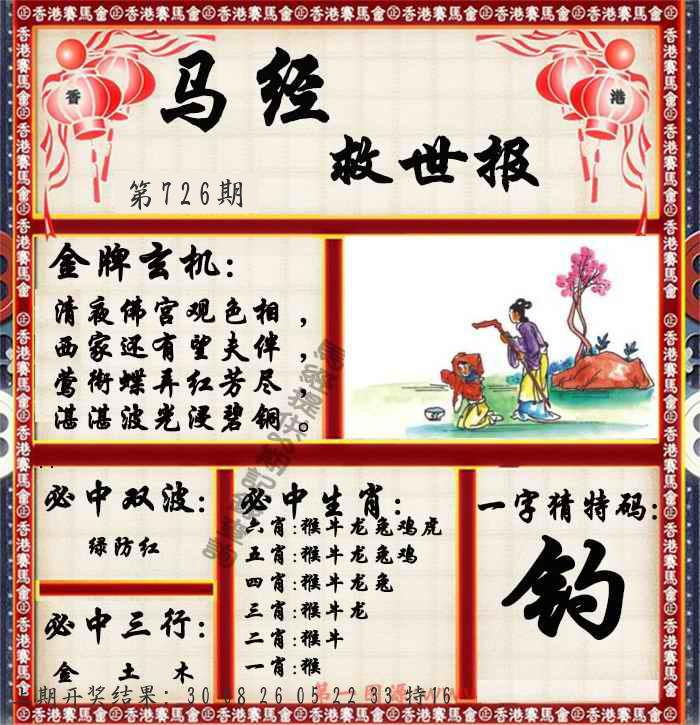 香港賽馬會 香港賽馬會 香港賽馬會 香港賽馬會 香港賽馬會 香港賽馬會
香 港
马经
救世报
第726期
金牌玄机:
清夜佛宫观色相，
西家还有望夫伴，
莺衔蝶弄红芳尽，
湛湛波光浸碧铜。
必中双波:
绿防红
必中三行:
金 土 木
必中生肖:
六肖:猴牛龙兔鸡虎
五肖:猴牛龙兔鸡
四肖:猴牛龙兔
三肖:猴牛龙
二肖:猴牛
一肖:猴
一字猜特码:
钓
期开奖结果: 30 08 26 05 22 33 特16